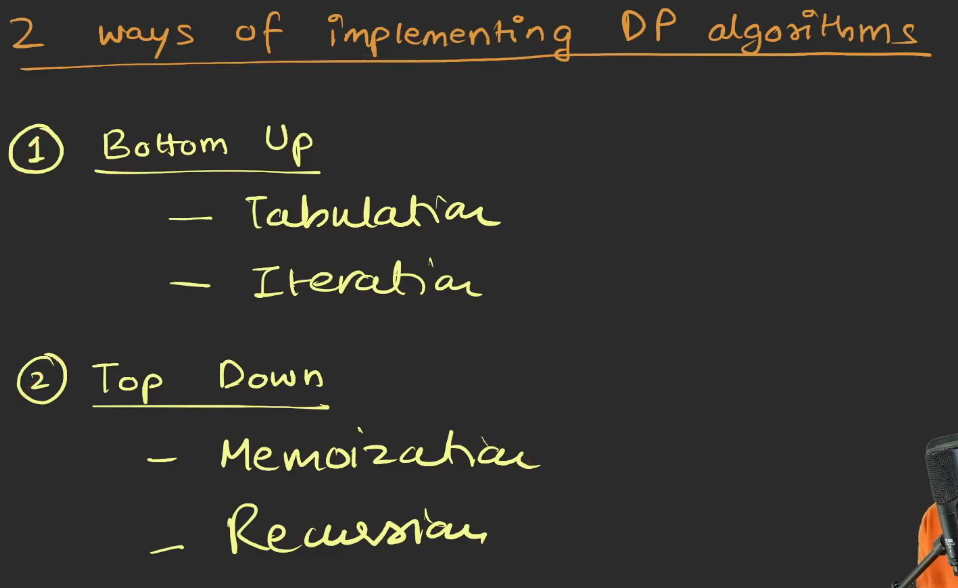 2 ways of implementing DP algorithms
1 Bottom Up
— Tabulation
— Iteration
2 Top Down
– Memoization
– Recursion